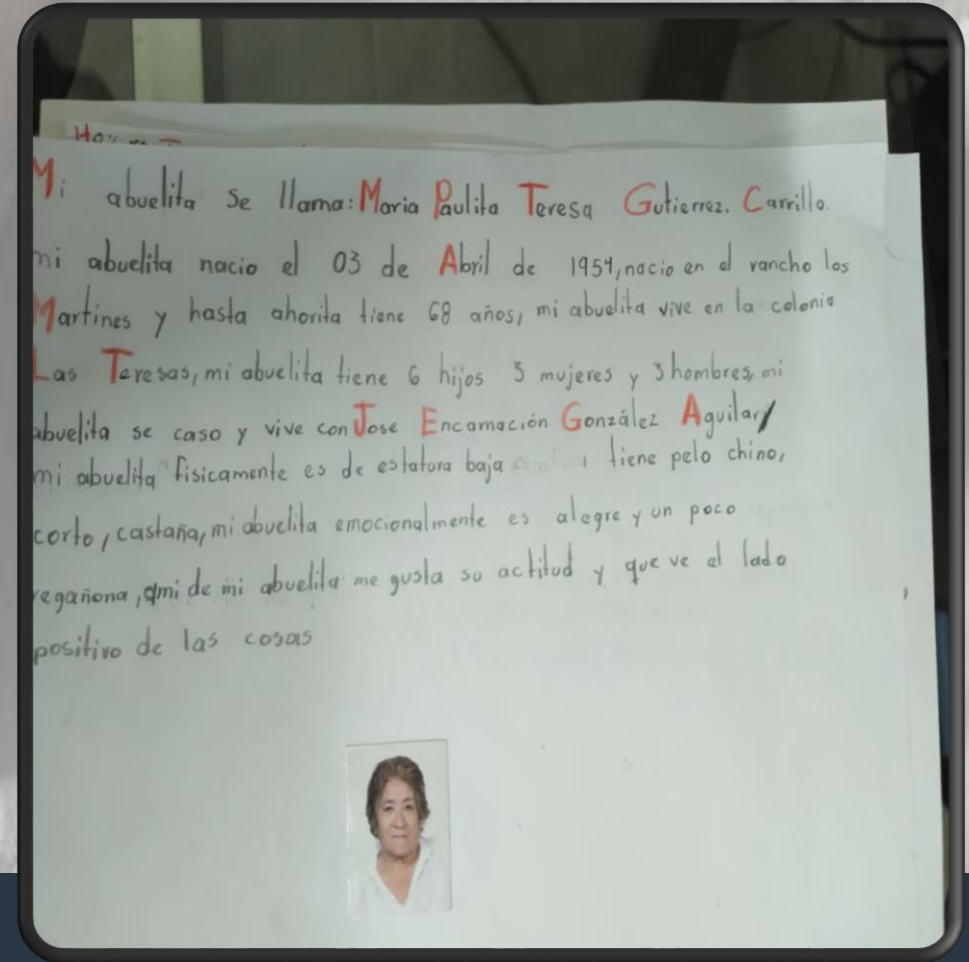 Mi abuelita se llama: Maria Paulita Teresa Gutierrez. Carrillo.
mi abuelita nacio el 03 de Abril de 1954, nacio en el rancho los
Martines y hasta ahorita tiene 68 años, mi abuelita vive en la colonia
Las Teresas, mi abuelita tiene 6 hijos 3 mujeres y 3 hombres, mi
abuelita se caso y vive con Jose Encarnación González Aguilar y
mi abuelita fisicamente es de estatura baja tiene pelo chino,
corto, castaña, mi abuelita emocionalmente es alegre y un poco
regañona, ami de mi abuelita me gusta su actitud y que ve el lado
positivo de las cosas